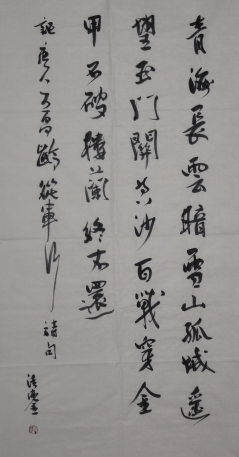 青海長雲暗雪山孤城遥
望玉門關黃沙百戰穿金
甲不破樓蘭終不還
唐人王昌齡從軍行詩句